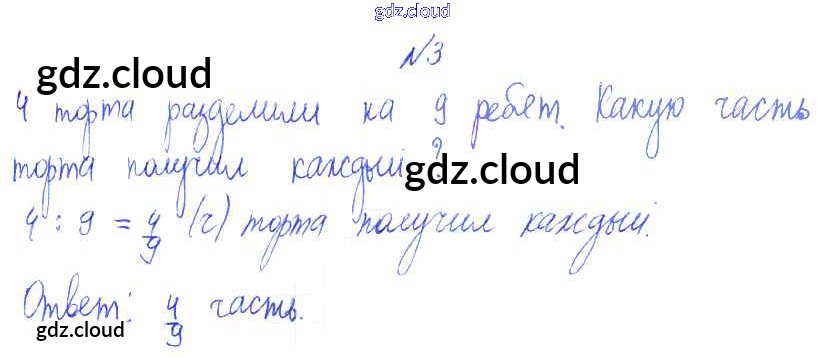 gdz.cloud
N3
gdz.cloud
4 торта разделили на 9 ребят. Какую часть
торта получил каждый?
gdz.cloud
4 : 9 = 4/9 (ч) торта получил каждый.
Ответ: 4/9 часть.
gdz.cloud